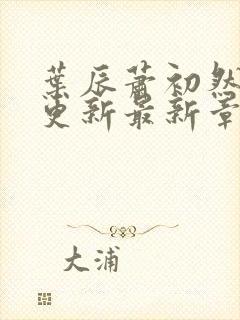 葉辰蕭初然
更新最新章
大浦